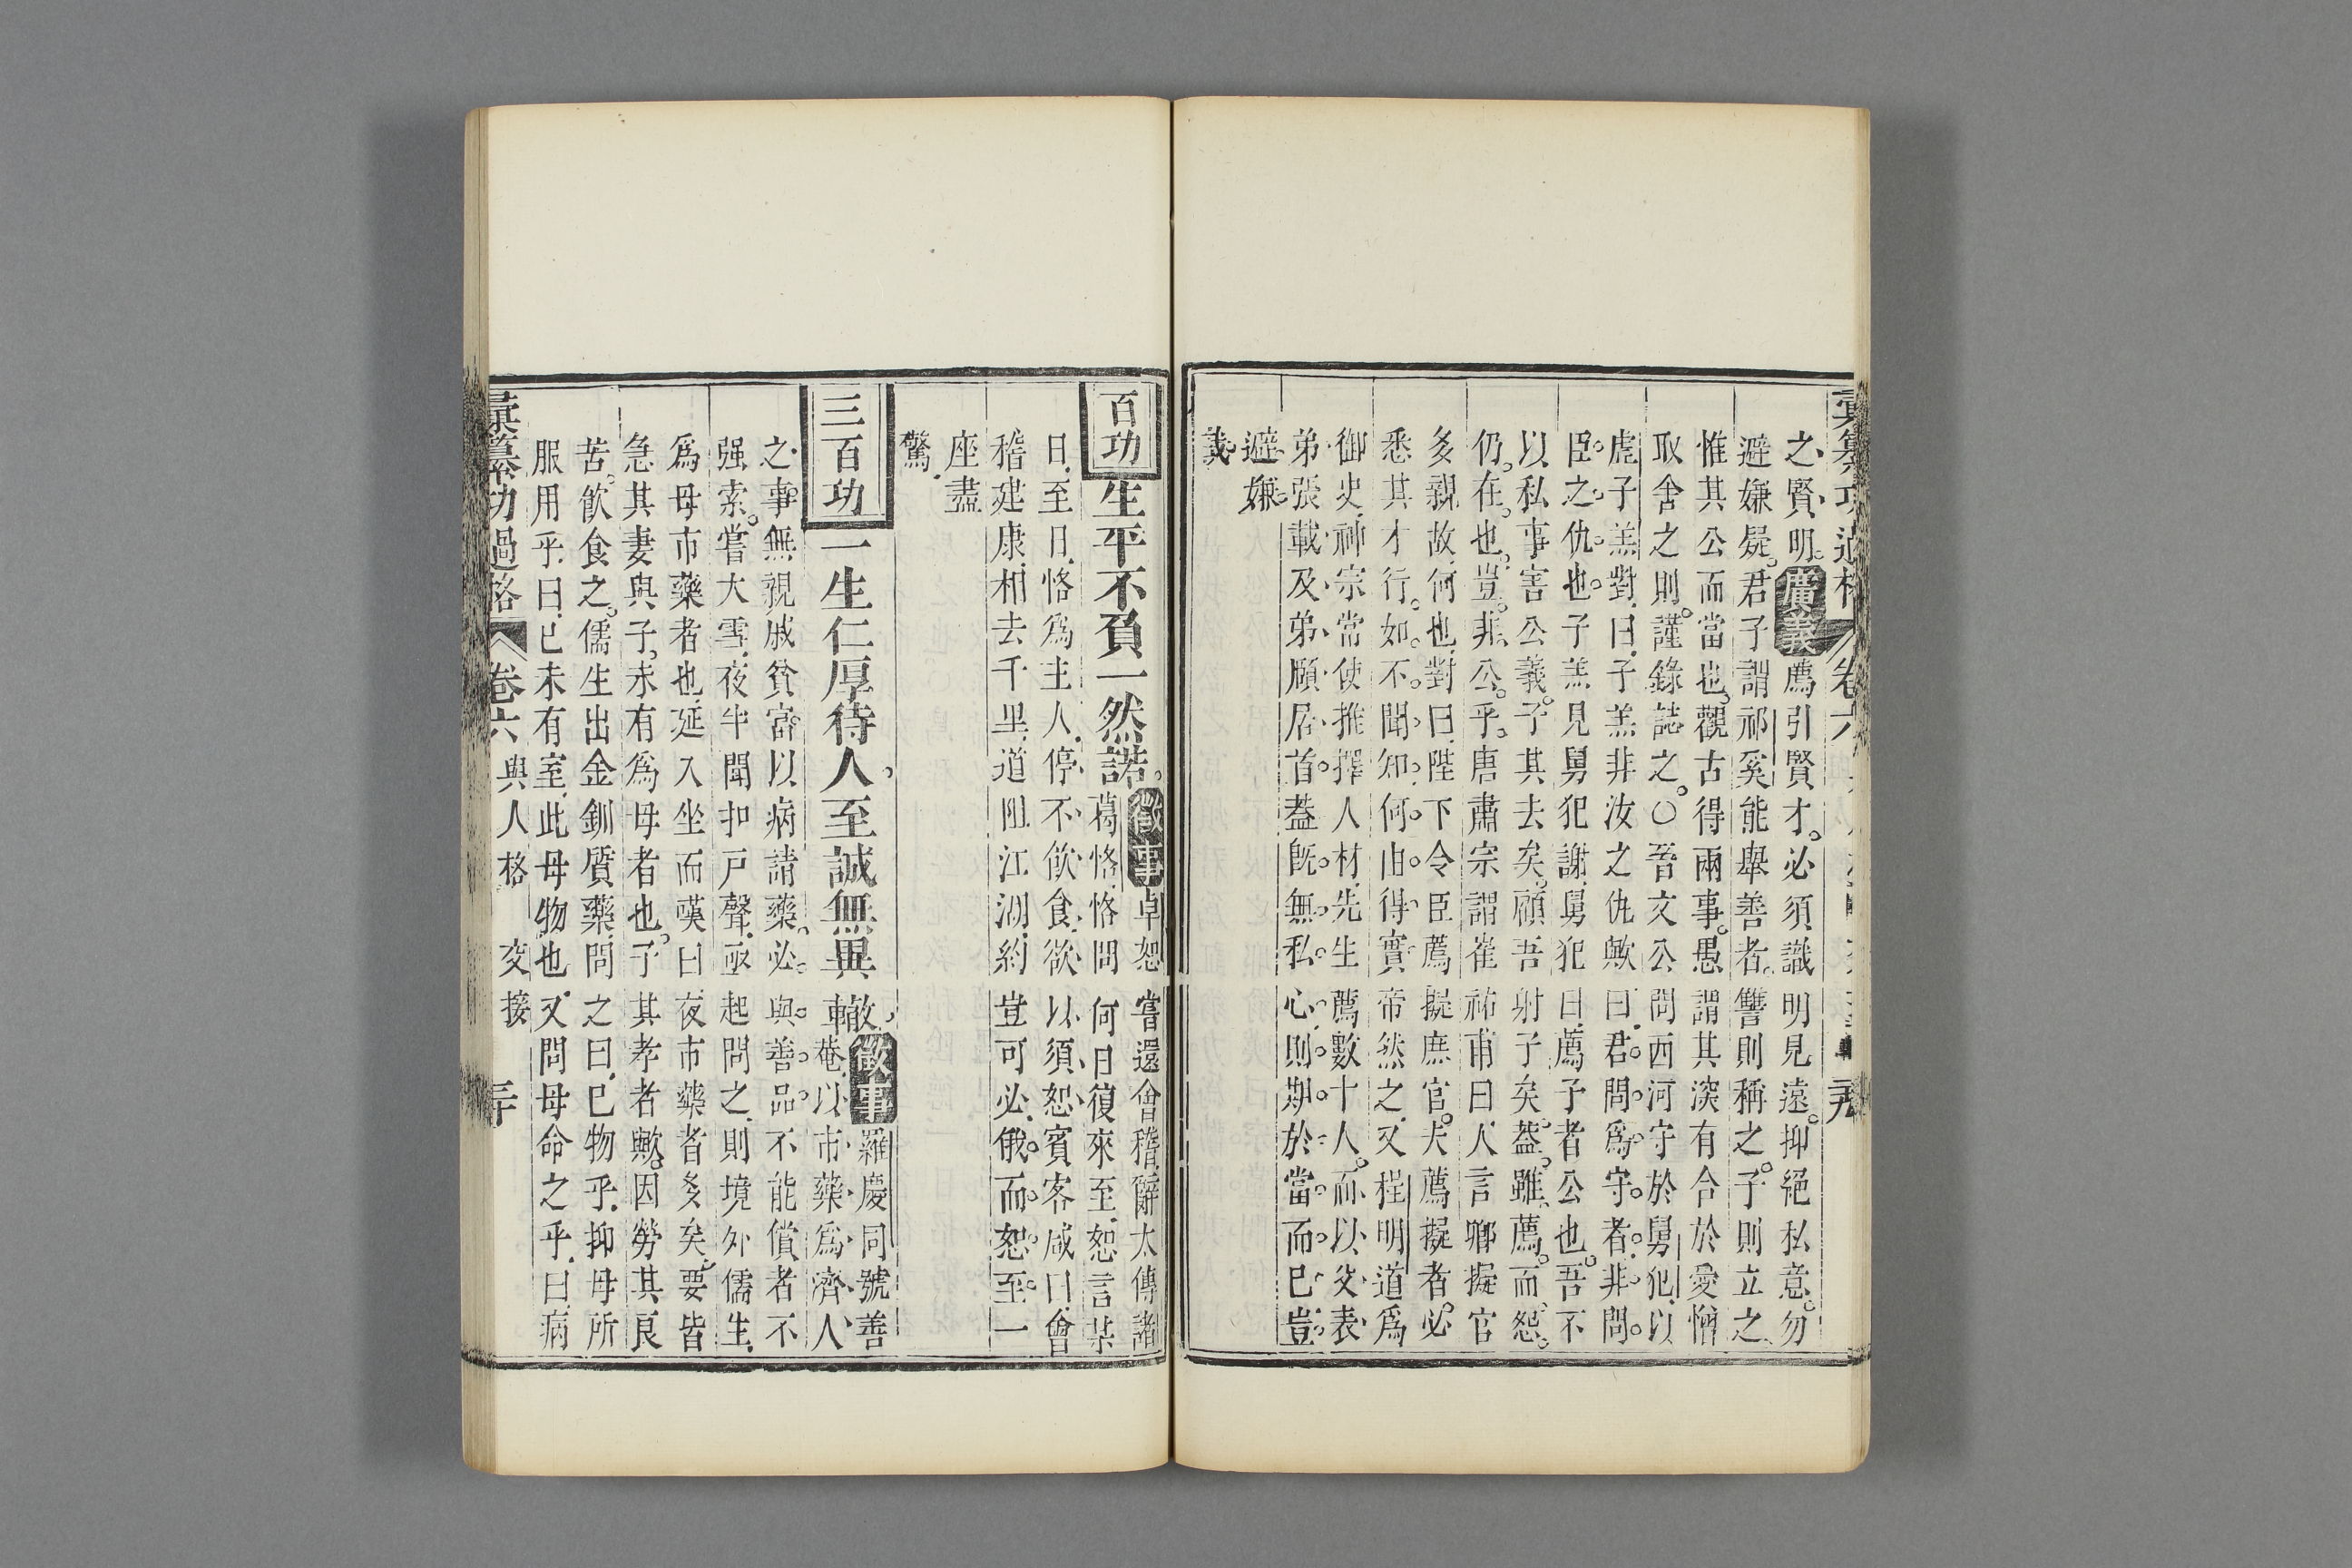 彙纂功過格 卷六
之賢明廣義薦引賢才必須識明見遠抑絕私意勿
避嫌疑君子謂祁奚能舉善者讐則稱之子則立之
惟其公而當也觀古得兩事愚謂其深有合於愛憎
取舍之則謹錄誌之○晉文公問西河守於舅犯以
虎子羔對曰子羔非汝之仇歟曰君問為守者非問
臣之仇也子羔見舅犯謝舅犯曰薦子者公也吾不
以私事害公義子其去矣顧吾射子矣葢雖薦而怨
仍在也豈非公乎唐肅宗謂崔祐甫曰人言卿擬官
多親故何也對曰陛下令臣薦擬庶官夫薦擬者必
悉其才行如不聞知何由得實帝然之又程明道為
御史神宗常使推擇人材先生薦數十人而以父表
弟張載及弟頤居首葢旣無私心則期於當而已豈
避嫌
義
百功 生平不負一然諾 徵事 卓恕嘗還會稽辭太傅諸
葛恪恪問何日復來至恕言某
日至日恪為主人停不飲食欲以須恕賓客咸曰會
稽建康相去千里道阻江湖約豈可必俄而恕至一
座盡
驚
三百功 一生仁厚待人至誠無異 徵事 羅慶同號善
轍 車菴以市藥為濟人
之事無親戚貧富以病請藥必與善品不能償者不
强索嘗大雪夜半聞扣戸聲亟起問之則境外儒生
為母市藥者也延入坐而嘆曰夜市藥者多矣要皆
急其妻與子未有為母者也子其孝者歟因勞其良
苦飲食之儒生出金釧質藥問之曰已物乎抑母所
服用乎曰已未有室此母物也又問母命之乎曰病
彙纂功過格 卷六 與人格 交接 三十